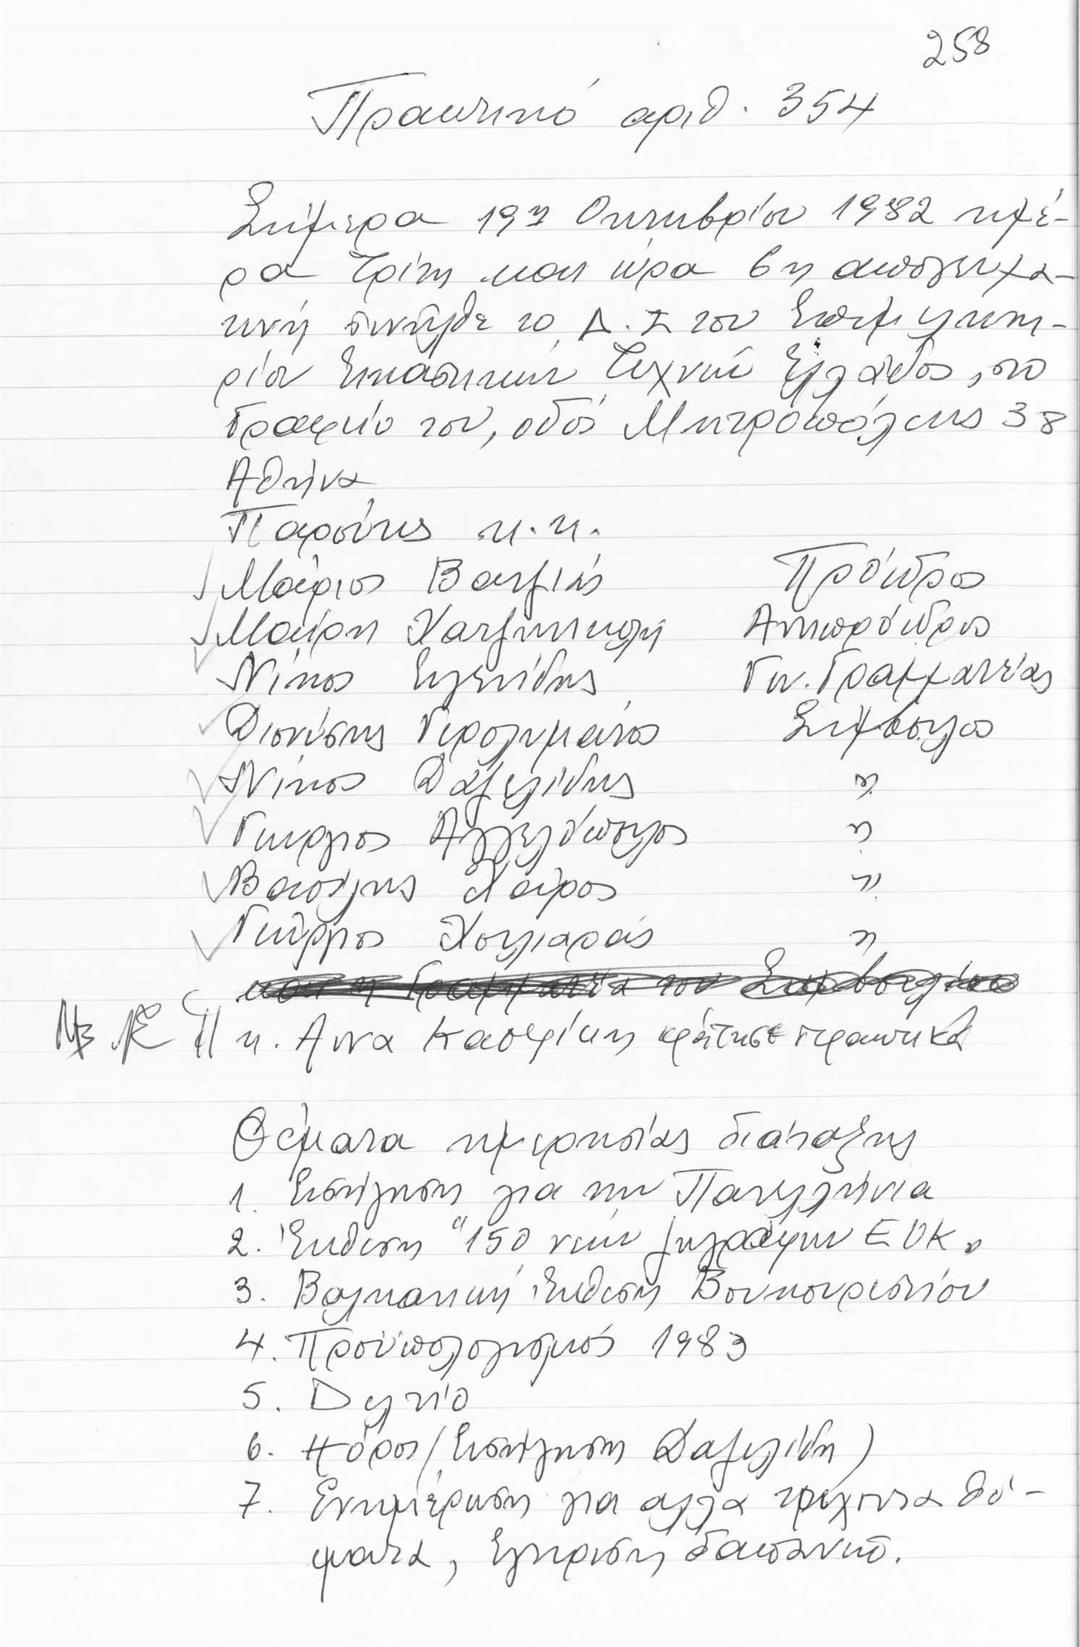 258
Πρακτικό αριθ. 354
Σήμερα 19η Οκτωβρίου 1982 ημέ-
ρα Τρίτη και ώρα 6η απογευμα-
τινή συνήλθε το Δ.Σ του Επιμελητη-
ρίου Εικαστικών Τεχνών Ελλάδος, στο
Γραφείο του, οδός Μητροπόλεως 38
Αθήνα
Παρόντες κ.κ.
Μάριος Βατζιάς Πρόεδρος
Μαίρη Χατζηνικολή Αντιπρόεδρος
Νίκος Ευγενίδης Γεν. Γραμματέας
Διονύσης Γερολυμάτος Σύμβουλος
Νίκος Δαζελίδης "
Γιώργος Αγγελόπουλος "
Βασίλης Χάρος "
Γιώργος Χουλιαράς "
και η Γραμματέα του Συμβουλίου
Η κ. Αννα Κασφίκη κράτησε πρακτικά
Θέματα ημερησίας διάταξης
1. Εισήγηση για την Πανελλήνια
2. Έκθεση "150 νέων ζωγράφων ΕΟΚ"
3. Βαλκανική Έκθεση Βουκουρεστίου
4. Προϋπολογισμός 1983
5. Δελτίο
6. Πόροι (Εισήγηση Δαζελίδη)
7. Ενημέρωση για αλλα τρέχοντα θέ-
ματα, Εγκριση δαπανών.